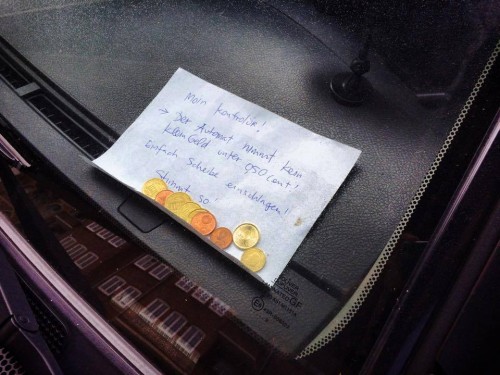 Moin Kontrolör!
→ Der Automat nimmt kein
Kleingeld unter 0,50 Cent!
Einfach Scheibe einschlagen!
Stimmt so!